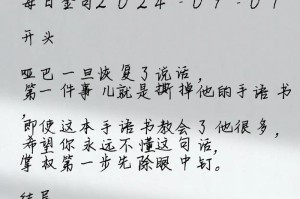 每日金句2024-09-01
开头
哑巴一旦恢复了说话，
第一件事儿就是撕掉他的手语书
，
即使这本手语书教会了他很多，
希望你永远不懂这句话，
掌权第一步先除眼中钉。
结尾